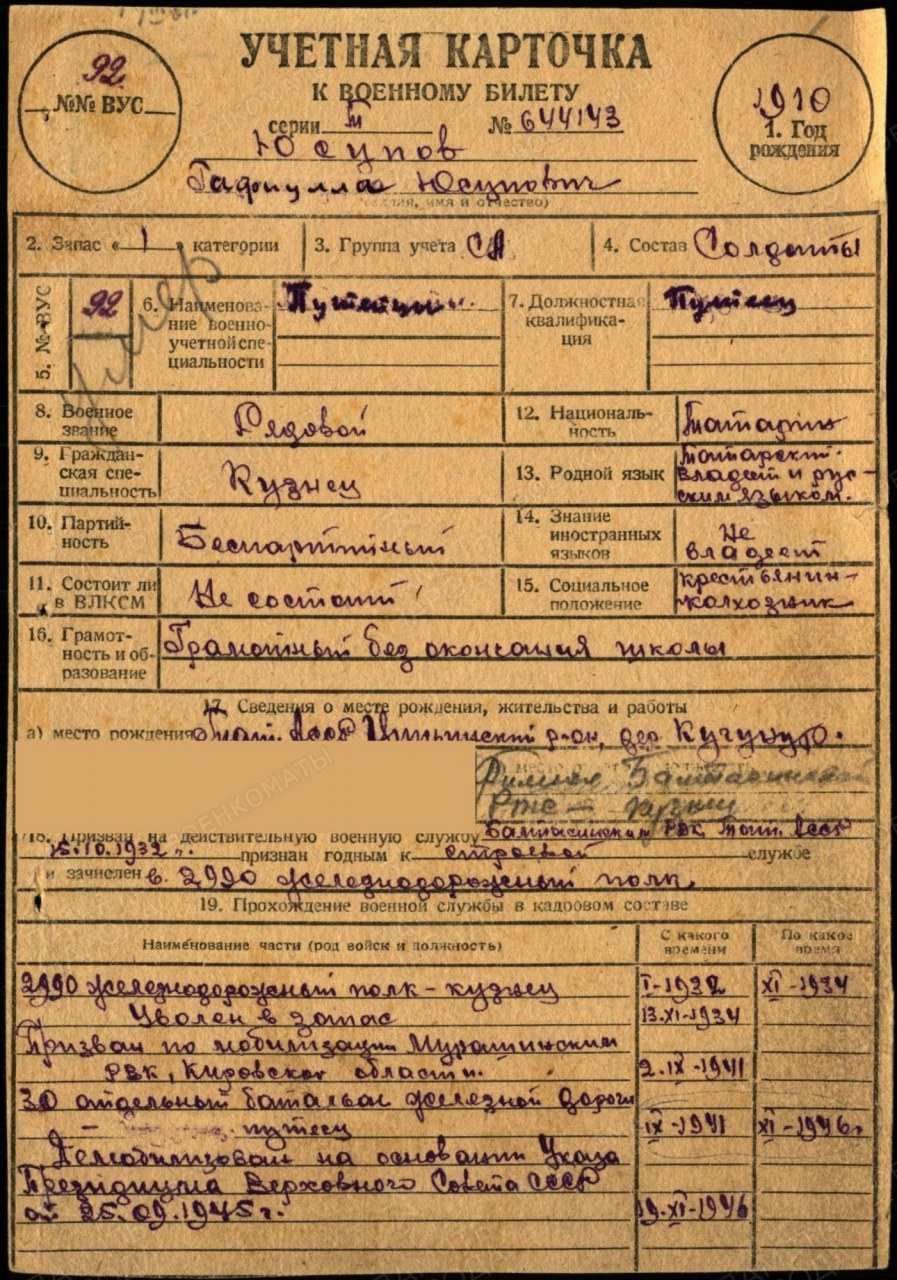 92
№№ ВУС
УЧЕТНАЯ КАРТОЧКА
К ВОЕННОМУ БИЛЕТУ
серии М № 644143
1910
1. Год
рождения
Юсупов
Гафиулла Юсупович
(фамилия, имя и отчество)
2. Запас « 1 » категории
3. Группа учета СА
4. Состав Солдаты
5. № ВУС
92
6. Наименова-
ние военно-
учетной спе-
циальности
7. Должностная
квалифика-
ция
Путеец
умер
8. Военное
звание
Рядовой
12. Националь-
ность
Татарин
9. Граждан-
ская спе-
циальность
Кузнец
13. Родной язык
Татарский.
владеет и рус-
ским языком.
10. Партий-
ность
Беспартийный
14. Знание
иностранных
языков
Не
владеет
11. Состоит ли
в ВЛКСМ
Не состоит
15. Социальное
положение
крестьянин-
колхозник
16. Грамот-
ность и об-
разование
Грамотный без окончания школы
17. Сведения о месте рождения, жительства и работы
а) место рождения Тат. АССР р-он, дер.
РТС - кузнец
18. Призван на действительную военную службу РВК Тат. АССР
15.10.1932 г. признан годным к строевой службе
и зачислен в 2990 железнодорожный полк.
19. Прохождение военной службы в кадровом составе
Наименование части (род войск и должность)
С какого
времени
По какое
время
2990 железнодорожный полк - кузнец I-1932 XI-1934
Уволен в запас 13.XI-1934
Призван по мобилизации Мурашинским
РВК, Кировской области. 2.IX-1941
30 отдельный батальон железной дороги
- путеец IX-1941 XI-1946г
Демобилизован на основании Указа
Президиума Верховного Совета СССР
от 25.09.1945 г. 19.XI-1946